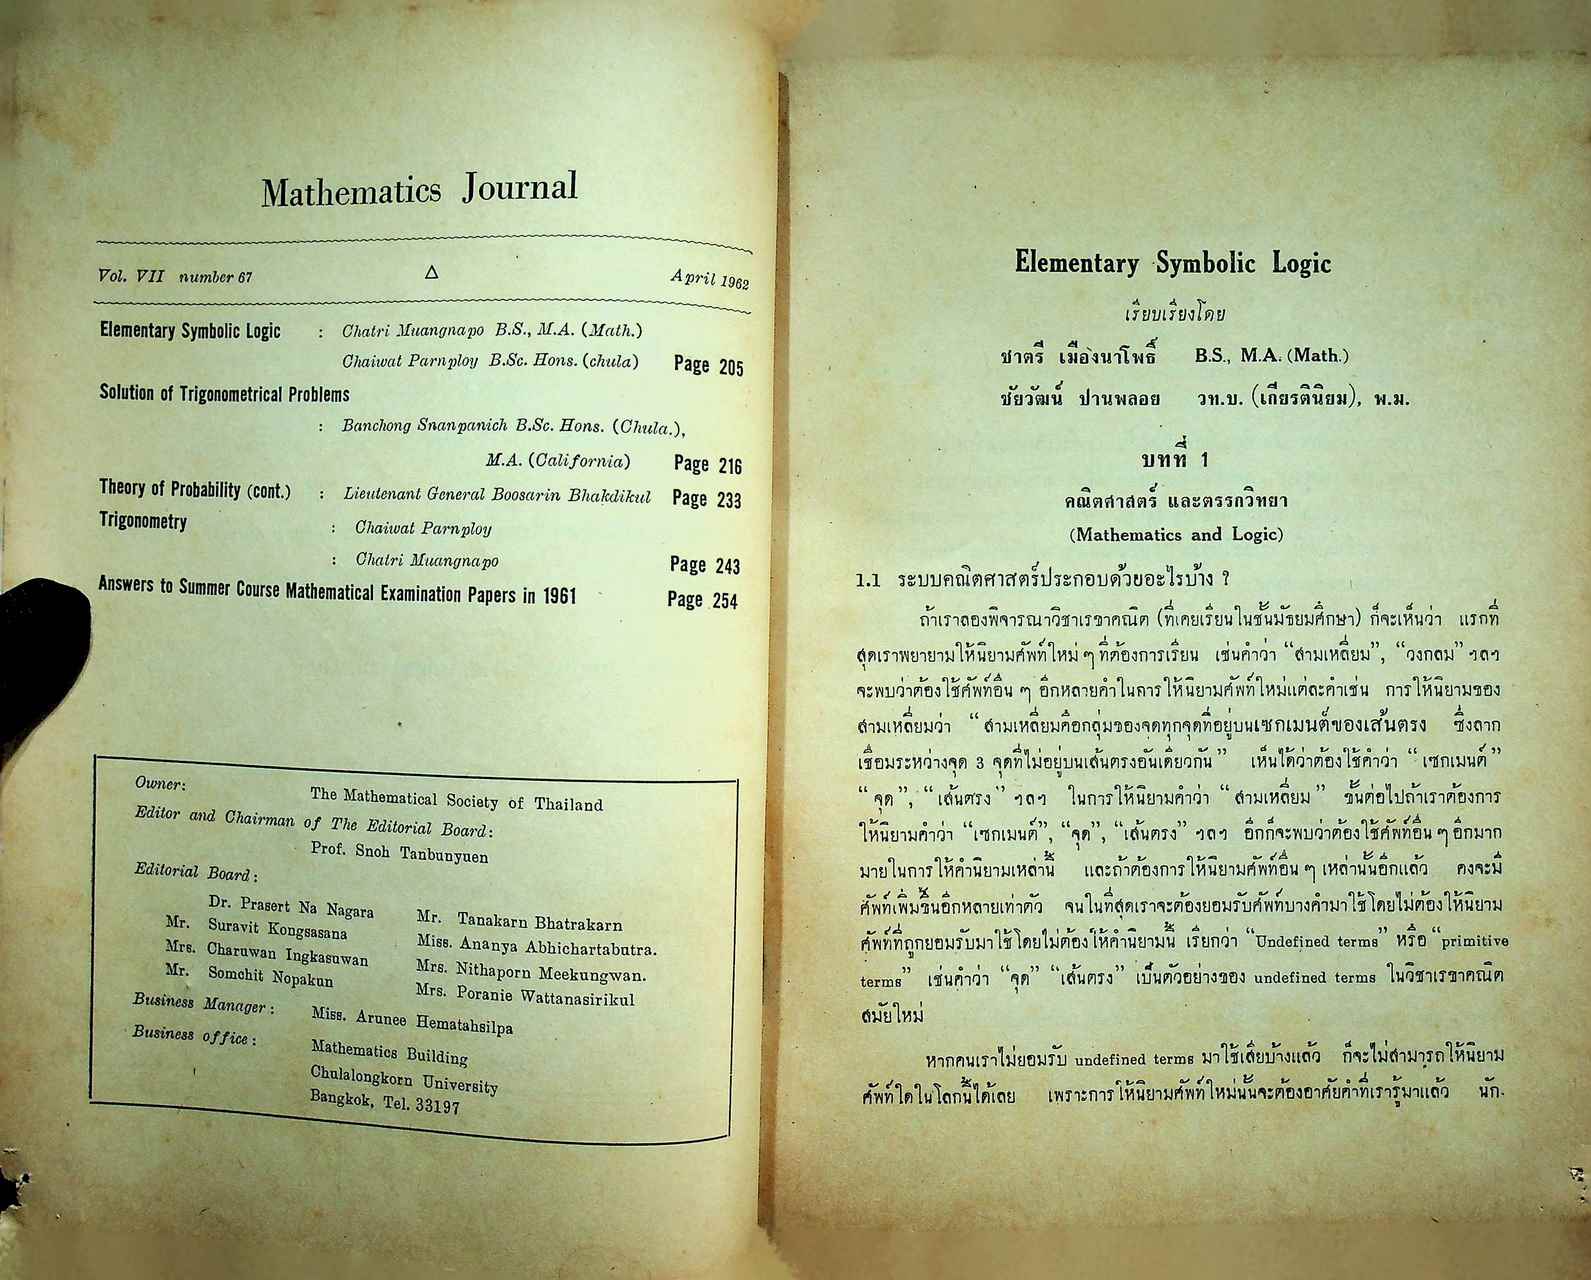 Mathematics Journal
Vol. VII number 67 Δ April 1962
Elementary Symbolic Logic : Chatri Muangnapo B.S., M.A. (Math.)
Chaiwat Parnploy B.Sc. Hons. (chula) Page 205
Solution of Trigonometrical Problems
: Banchong Snanpanich B.Sc. Hons. (Chula.),
M.A. (California) Page 216
Theory of Probability (cont.) : Lieutenant General Boosarin Bhakdikul Page 233
Trigonometry : Chaiwat Parnploy
: Chatri Muangnapo Page 243
Answers to Summer Course Mathematical Examination Papers in 1961 Page 254
Owner:
The Mathematical Society of Thailand
Editor and Chairman of The Editorial Board:
Prof. Snoh Tanbunyuen
Editorial Board:
Dr. Prasert Na Nagara Mr. Tanakarn Bhatrakarn
Mr. Suravit Kongsasana Miss. Ananya Abhichartabutra.
Mrs. Charuwan Ingkasuwan Mrs. Nithaporn Meekungwan.
Mr. Somchit Nopakun Mrs. Poranie Wattanasirikul
Business Manager: Miss. Arunee Hematahsilpa
Business office: Mathematics Building
Chulalongkorn University
Bangkok, Tel. 33197
Elementary Symbolic Logic
เรียบเรียงโดย
ชาตรี เมืองนาโพธิ์ B.S., M.A. (Math.)
ชัยวัฒน์ ปานพลอย วท.บ. (เกียรตินิยม), พ.ม.
บทที่ 1
คณิตศาสตร์ และตรรกวิทยา
(Mathematics and Logic)
1.1 ระบบคณิตศาสตร์ประกอบด้วยอะไรบ้าง ?
ถ้าเราลองพิจารณาวิชาเรขาคณิต (ที่เคยเรียนในชั้นมัธยมศึกษา) ก็จะเห็นว่า แรกที่
สุดเราพยายามให้นิยามศัพท์ใหม่ ๆ ที่ต้องการเรียน เช่นคำว่า “สามเหลี่ยม”, “วงกลม” ฯลฯ
จะพบว่าต้องใช้ศัพท์อื่น ๆ อีกหลายคำในการให้นิยามศัพท์ใหม่แต่ละคำเช่น การให้นิยามของ
สามเหลี่ยมว่า “ สามเหลี่ยมคือกลุ่มของจุดทุกจุดที่อยู่บนเซกเมนต์ของเส้นตรง ซึ่งลาก
เชื่อมระหว่างจุด 3 จุดที่ไม่อยู่บนเส้นตรงอันเดียวกัน ” เห็นได้ว่าต้องใช้คำว่า “ เซกเมนต์ ”
“ จุด ”, “ เส้นตรง ” ฯลฯ ในการให้นิยามคำว่า “ สามเหลี่ยม ” ขั้นต่อไปถ้าเราต้องการ
ให้นิยามคำว่า “เซกเมนต์”, “จุด”, “เส้นตรง” ฯลฯ อีกก็จะพบว่าต้องใช้ศัพท์อื่น ๆ อีกมาก
มายในการให้คำนิยามเหล่านี้ และถ้าต้องการให้นิยามศัพท์อื่น ๆ เหล่านั้นอีกแล้ว คงจะมี
ศัพท์เพิ่มขึ้นอีกหลายเท่าตัว จนในที่สุดเราจะต้องยอมรับศัพท์บางคำมาใช้โดยไม่ต้องให้นิยาม
ศัพท์ที่ถูกยอมรับมาใช้โดยไม่ต้องให้คำนิยามนี้ เรียกว่า “Undefined terms” หรือ “primitive
terms” เช่นคำว่า “จุด” “เส้นตรง” เป็นตัวอย่างของ undefined terms ในวิชาเรขาคณิต
สมัยใหม่
หากคนเราไม่ยอมรับ undefined terms มาใช้เสียบ้างแล้ว ก็จะไม่สามารถให้นิยาม
ศัพท์ใดในโลกนี้ได้เลย เพราะการให้นิยามศัพท์ใหม่นั้นจะต้องอาศัยคำที่เรารู้มาแล้ว นัก-